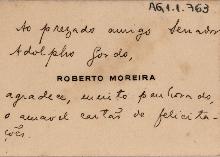 AG.1.1.763
Ao prezado amigo Senador
Adolpho Gordo,
ROBERTO MOREIRA
agradece, muito penhorado
o amavel cartão de felicita-
ções.